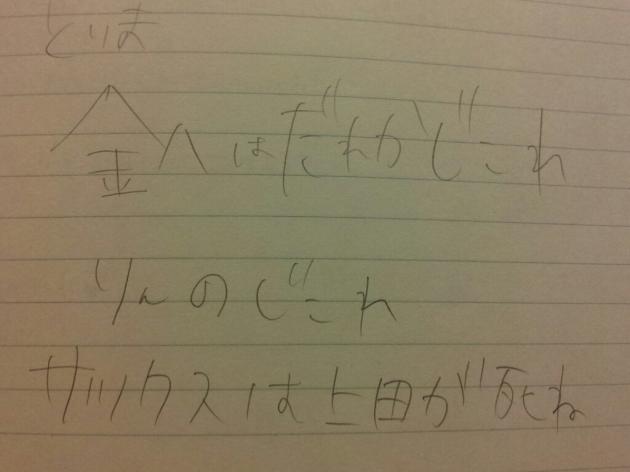 とりま
金八はだれがじこれ
りんのじこれ
サックスは上田が死ね